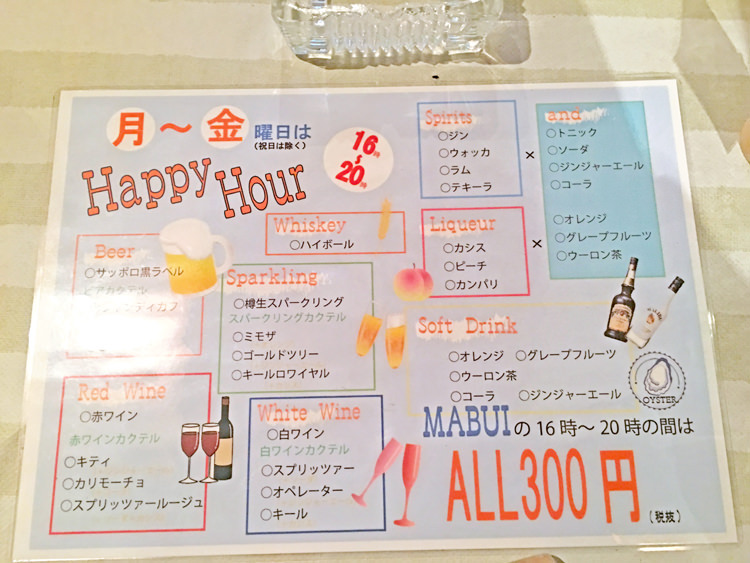 月～金 曜日は
(祝日は除く)
16時～20時
Happy Hour
Beer
○サッポロ黒ラベル
ビアカクテル
Whiskey
○ハイボール
Sparkling
○樽生スパークリング
スパークリングカクテル
○ミモザ
○ゴールドツリー
○キールロワイヤル
Red Wine
○赤ワイン
赤ワインカクテル
○キティ
○カリモーチョ
○スプリッツァールージュ
White Wine
○白ワイン
白ワインカクテル
○スプリッツァー
○オペレーター
○キール
Spirits
○ジン
○ウォッカ
○ラム
○テキーラ
×
Liqueur
○カシス
○ピーチ
○カンパリ
×
and
○トニック
○ソーダ
○ジンジャーエール
○コーラ
○オレンジ
○グレープフルーツ
○ウーロン茶
Soft Drink
○オレンジ ○グレープフルーツ
○ウーロン茶
○コーラ ○ジンジャーエール
OYSTER
MABUIの16時～20時の間は
ALL300円
(税抜)